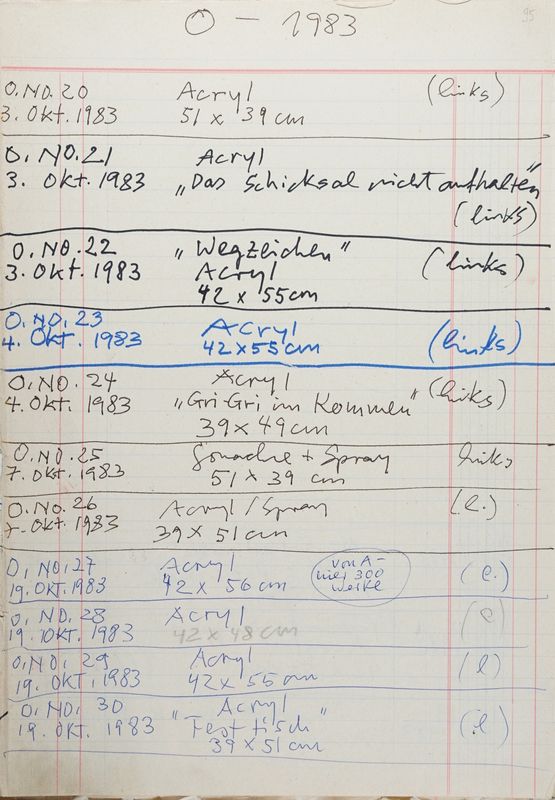 O - 1983
95
O. NO. 20 Acryl (links)
3. Okt. 1983 51 x 39 cm
O. NO. 21 Acryl
3. Okt. 1983 „Das Schicksal nicht aufhalten"
(links)
O. NO. 22 „Wegzeichen" (links)
3. Okt. 1983 Acryl
42 x 55cm
O. NO. 23 Acryl (links)
4. Okt. 1983 42 x 55 cm
O. NO. 24 Acryl (links)
4. Okt. 1983 „Gri-Gri im Kommen"
39 x 49 cm
O. NO. 25 Gouache + Spray links
7. Okt. 1983 51 x 39 cm
O. No. 26 Acryl / Spray (l.)
7. Okt. 1983 39 x 51 cm
O. NO. 27 Acryl von A- (l.)
19. OKT. 1983 42 x 56 cm hier 300
Werke
O. NO. 28 Acryl (l)
19. OKT. 1983 42 x 48 cm
O. NO. 29 Acryl (l)
19. OKT. 1983 42 x 55 cm
O. NO. 30 Acryl (l)
19. OKT. 1983 "Festtisch"
39 x 51 cm